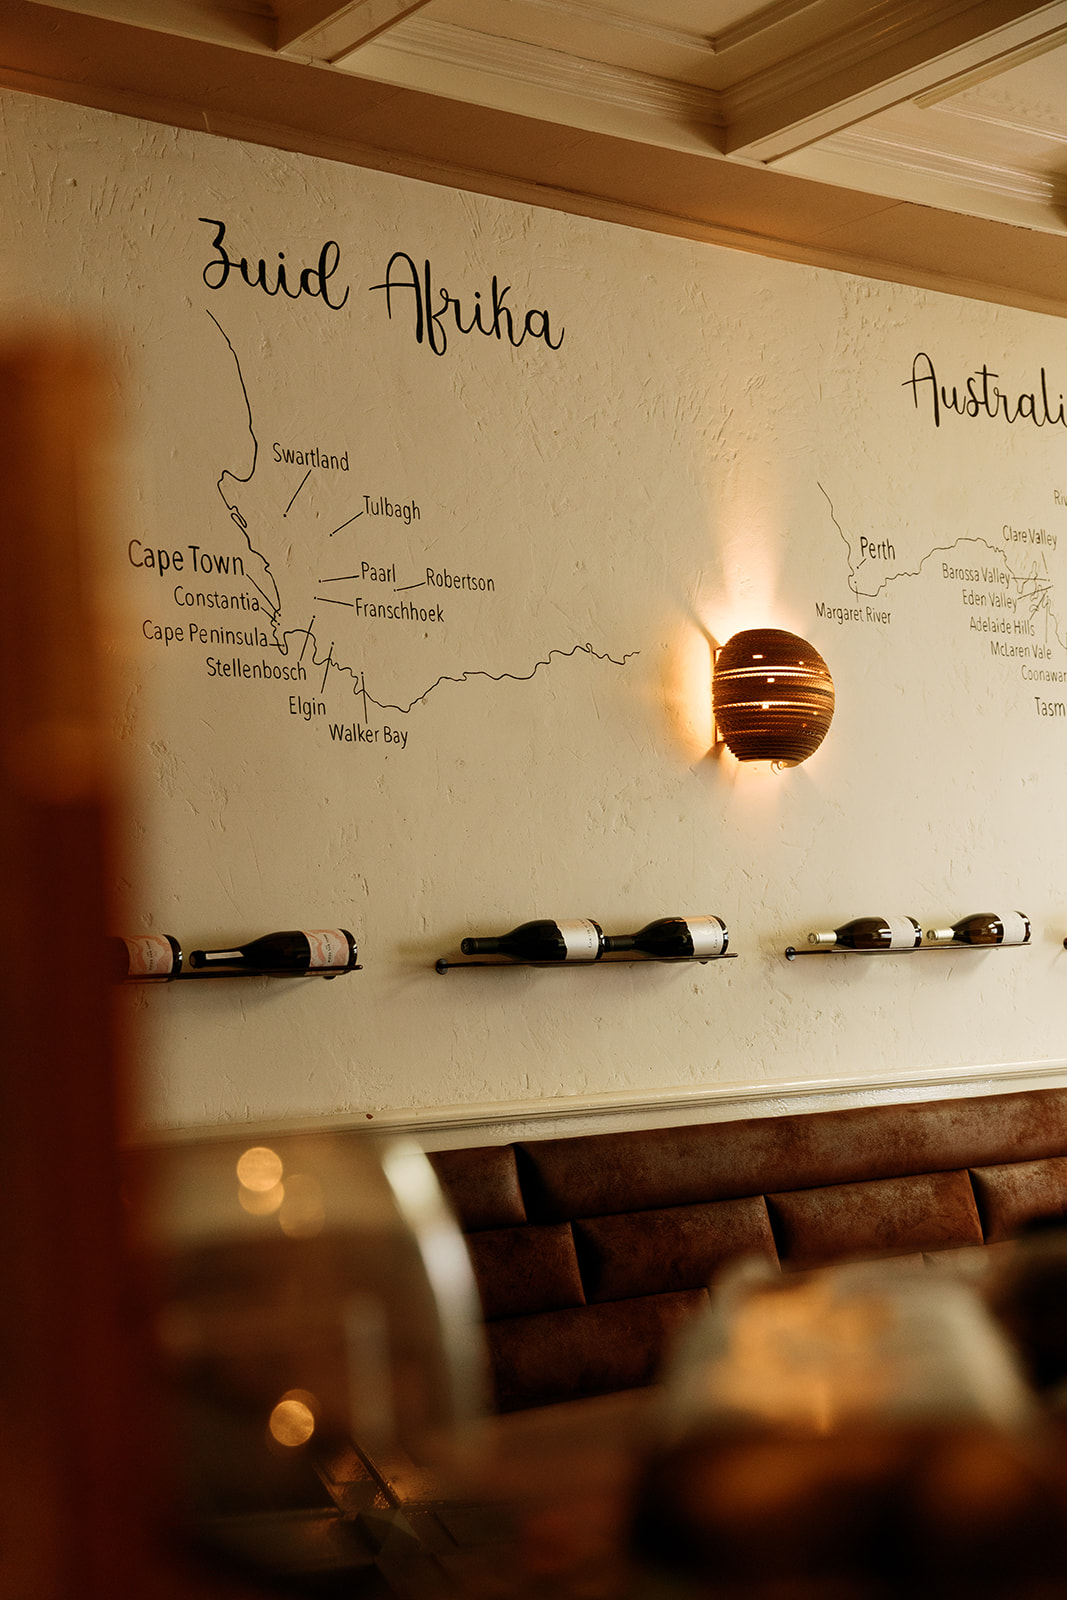 Zuid Afrika
Swartland
Tulbagh
Cape Town
Paarl
Robertson
Constantia
Franschhoek
Cape Peninsula
Stellenbosch
Elgin
Walker Bay
Australi
Riv
Clare Valley
Perth
Barossa Valley
Eden Valley
Margaret River
Adelaide Hills
McLaren Vale
Coonawar
Tasm